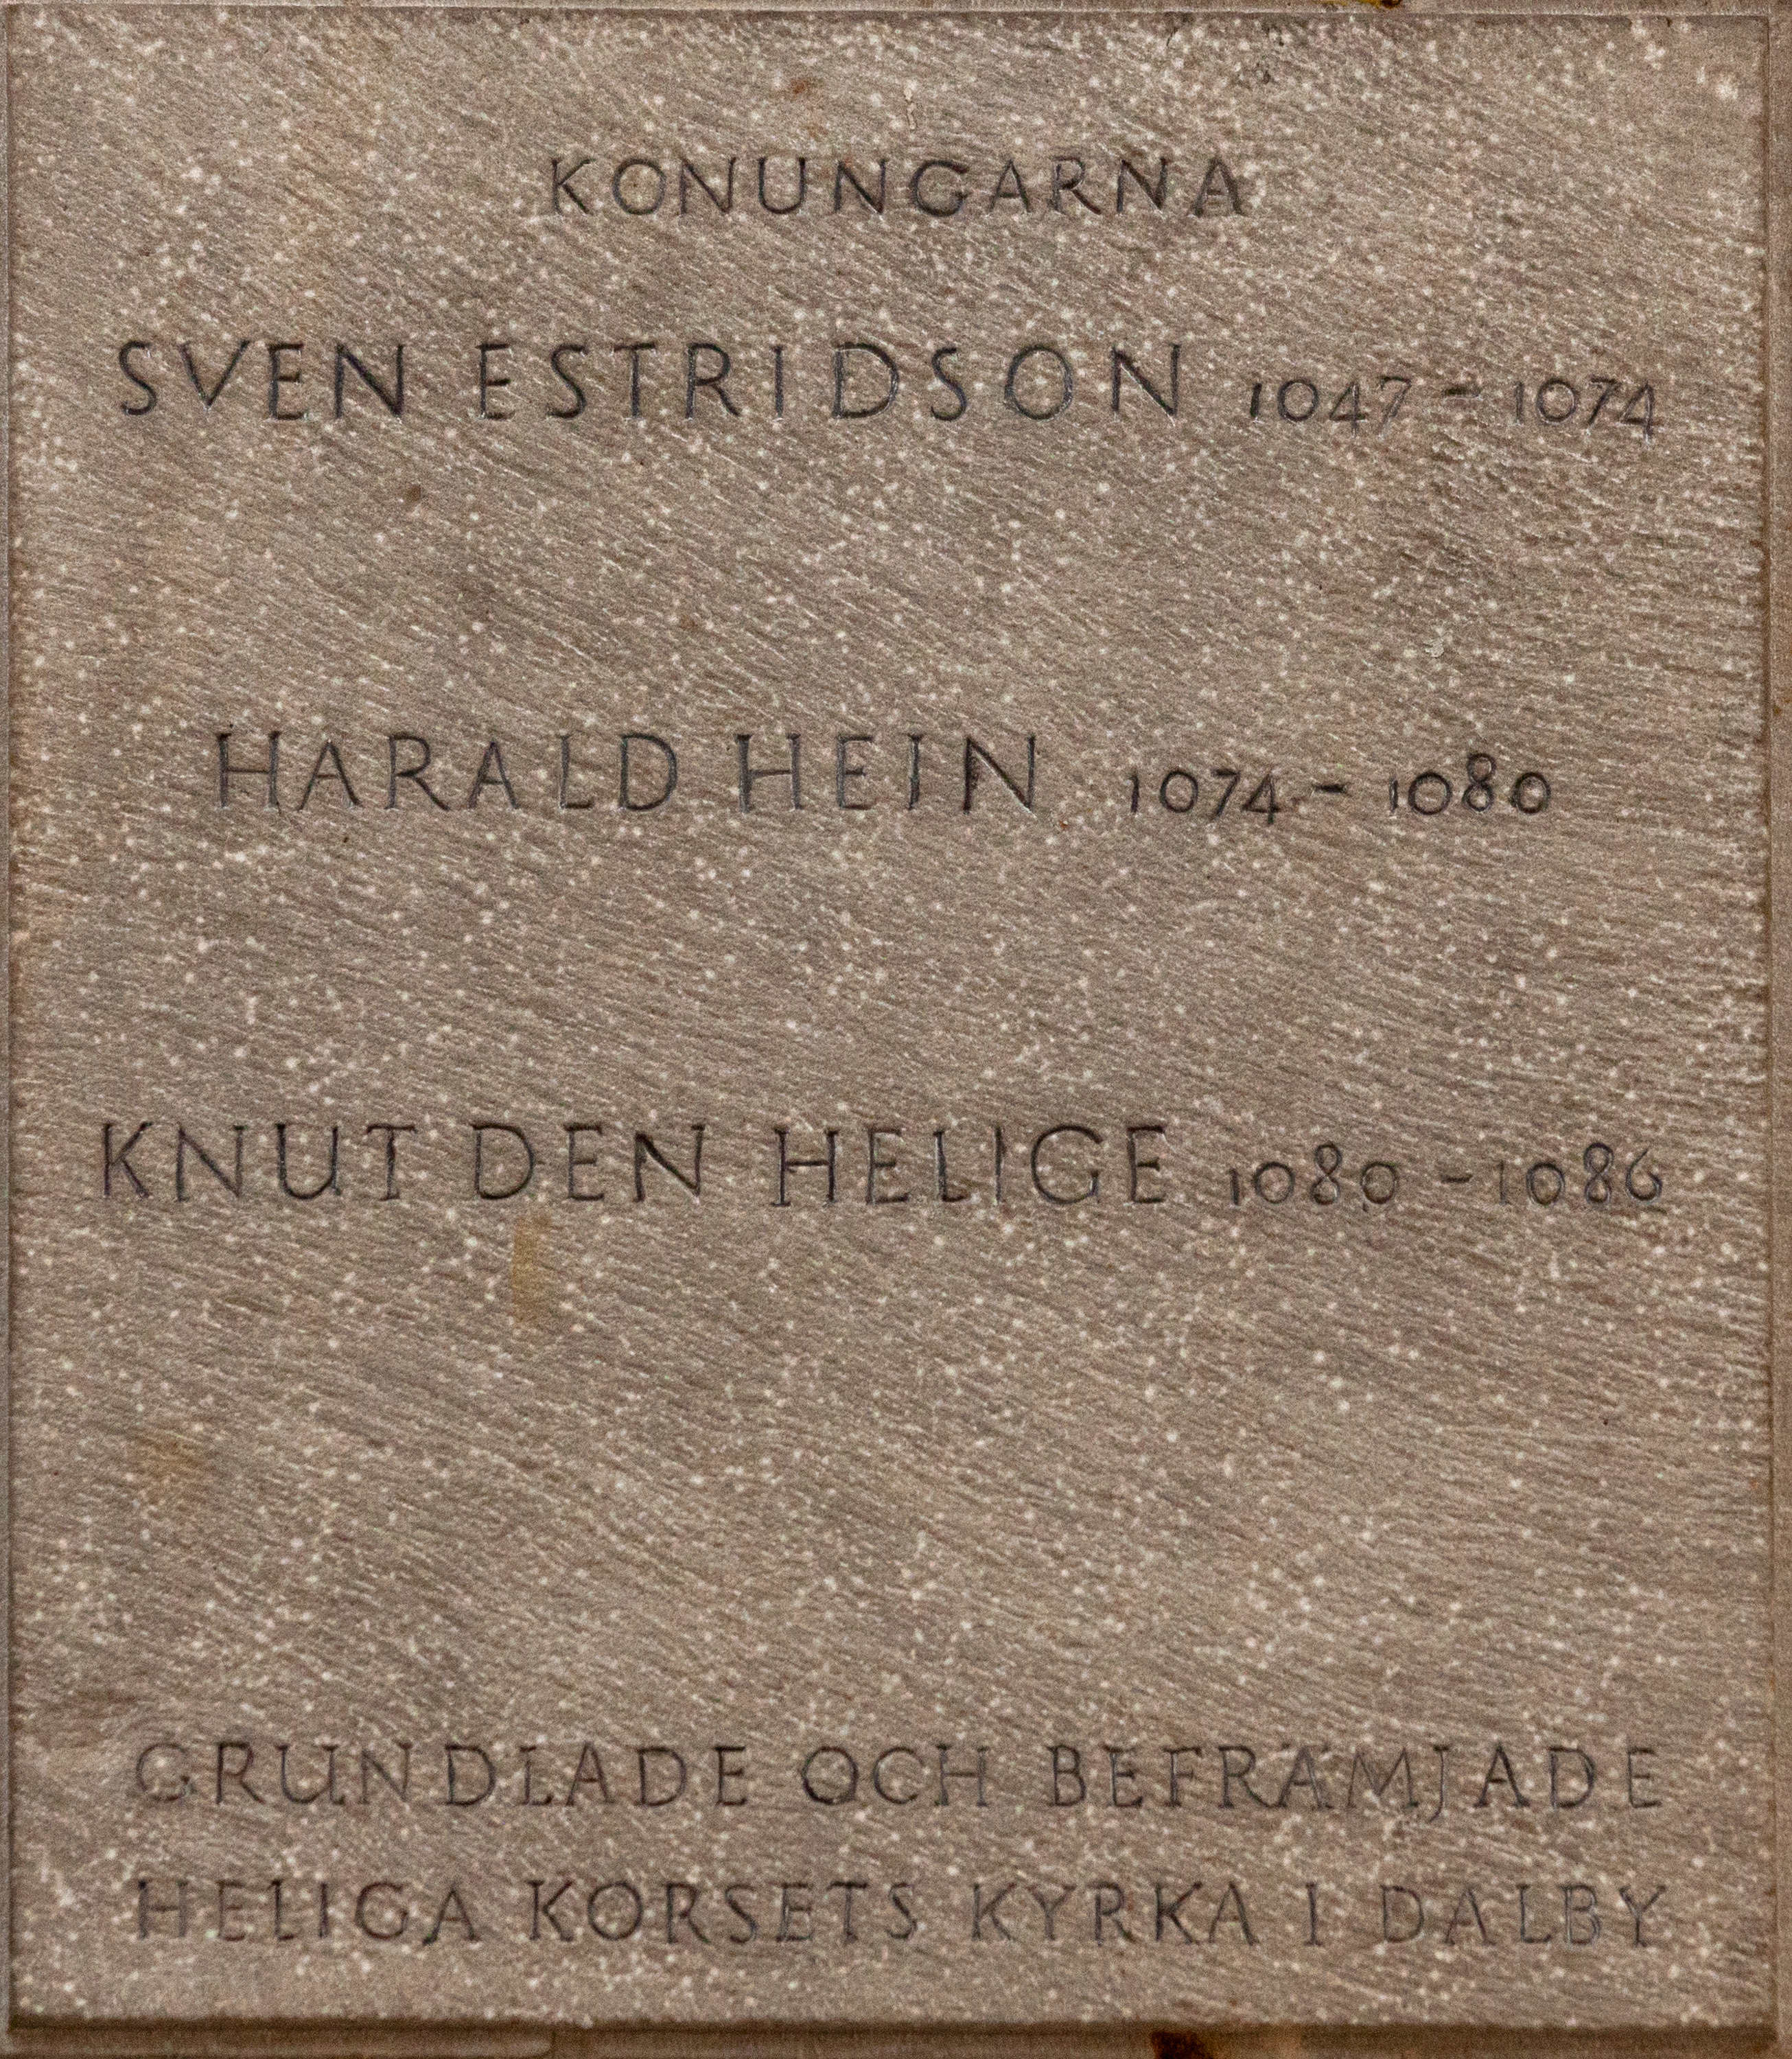 KONUNGARNA
SVEN ESTRIDSON 1047 - 1074
HARALD HEIN 1074 - 1080
KNUT DEN HELIGE 1080 - 1086
GRUNDLADE OCH BEFRÄMJADE
HELIGA KORSETS KYRKA I DALBY